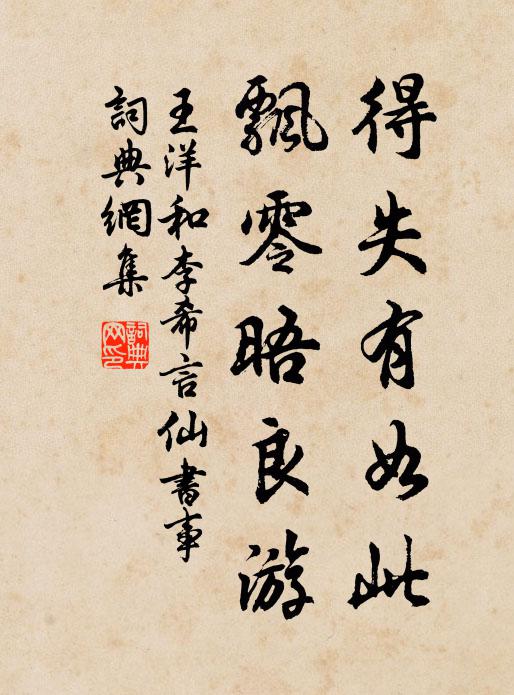 得失有如此
飄零晤良游
王洋和李希言仙書事
詞典網集
詞典網印